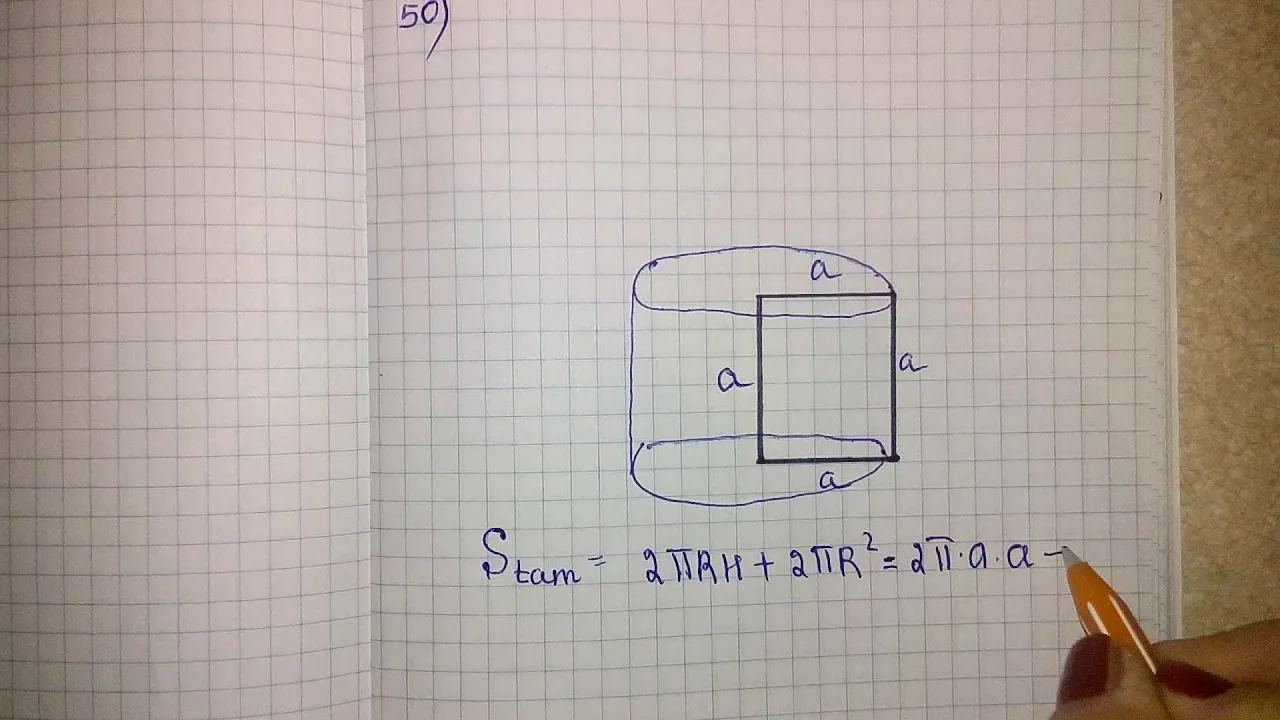 50)
a
a
a
a
Stam = 2πRH + 2πR² = 2π·a·a –